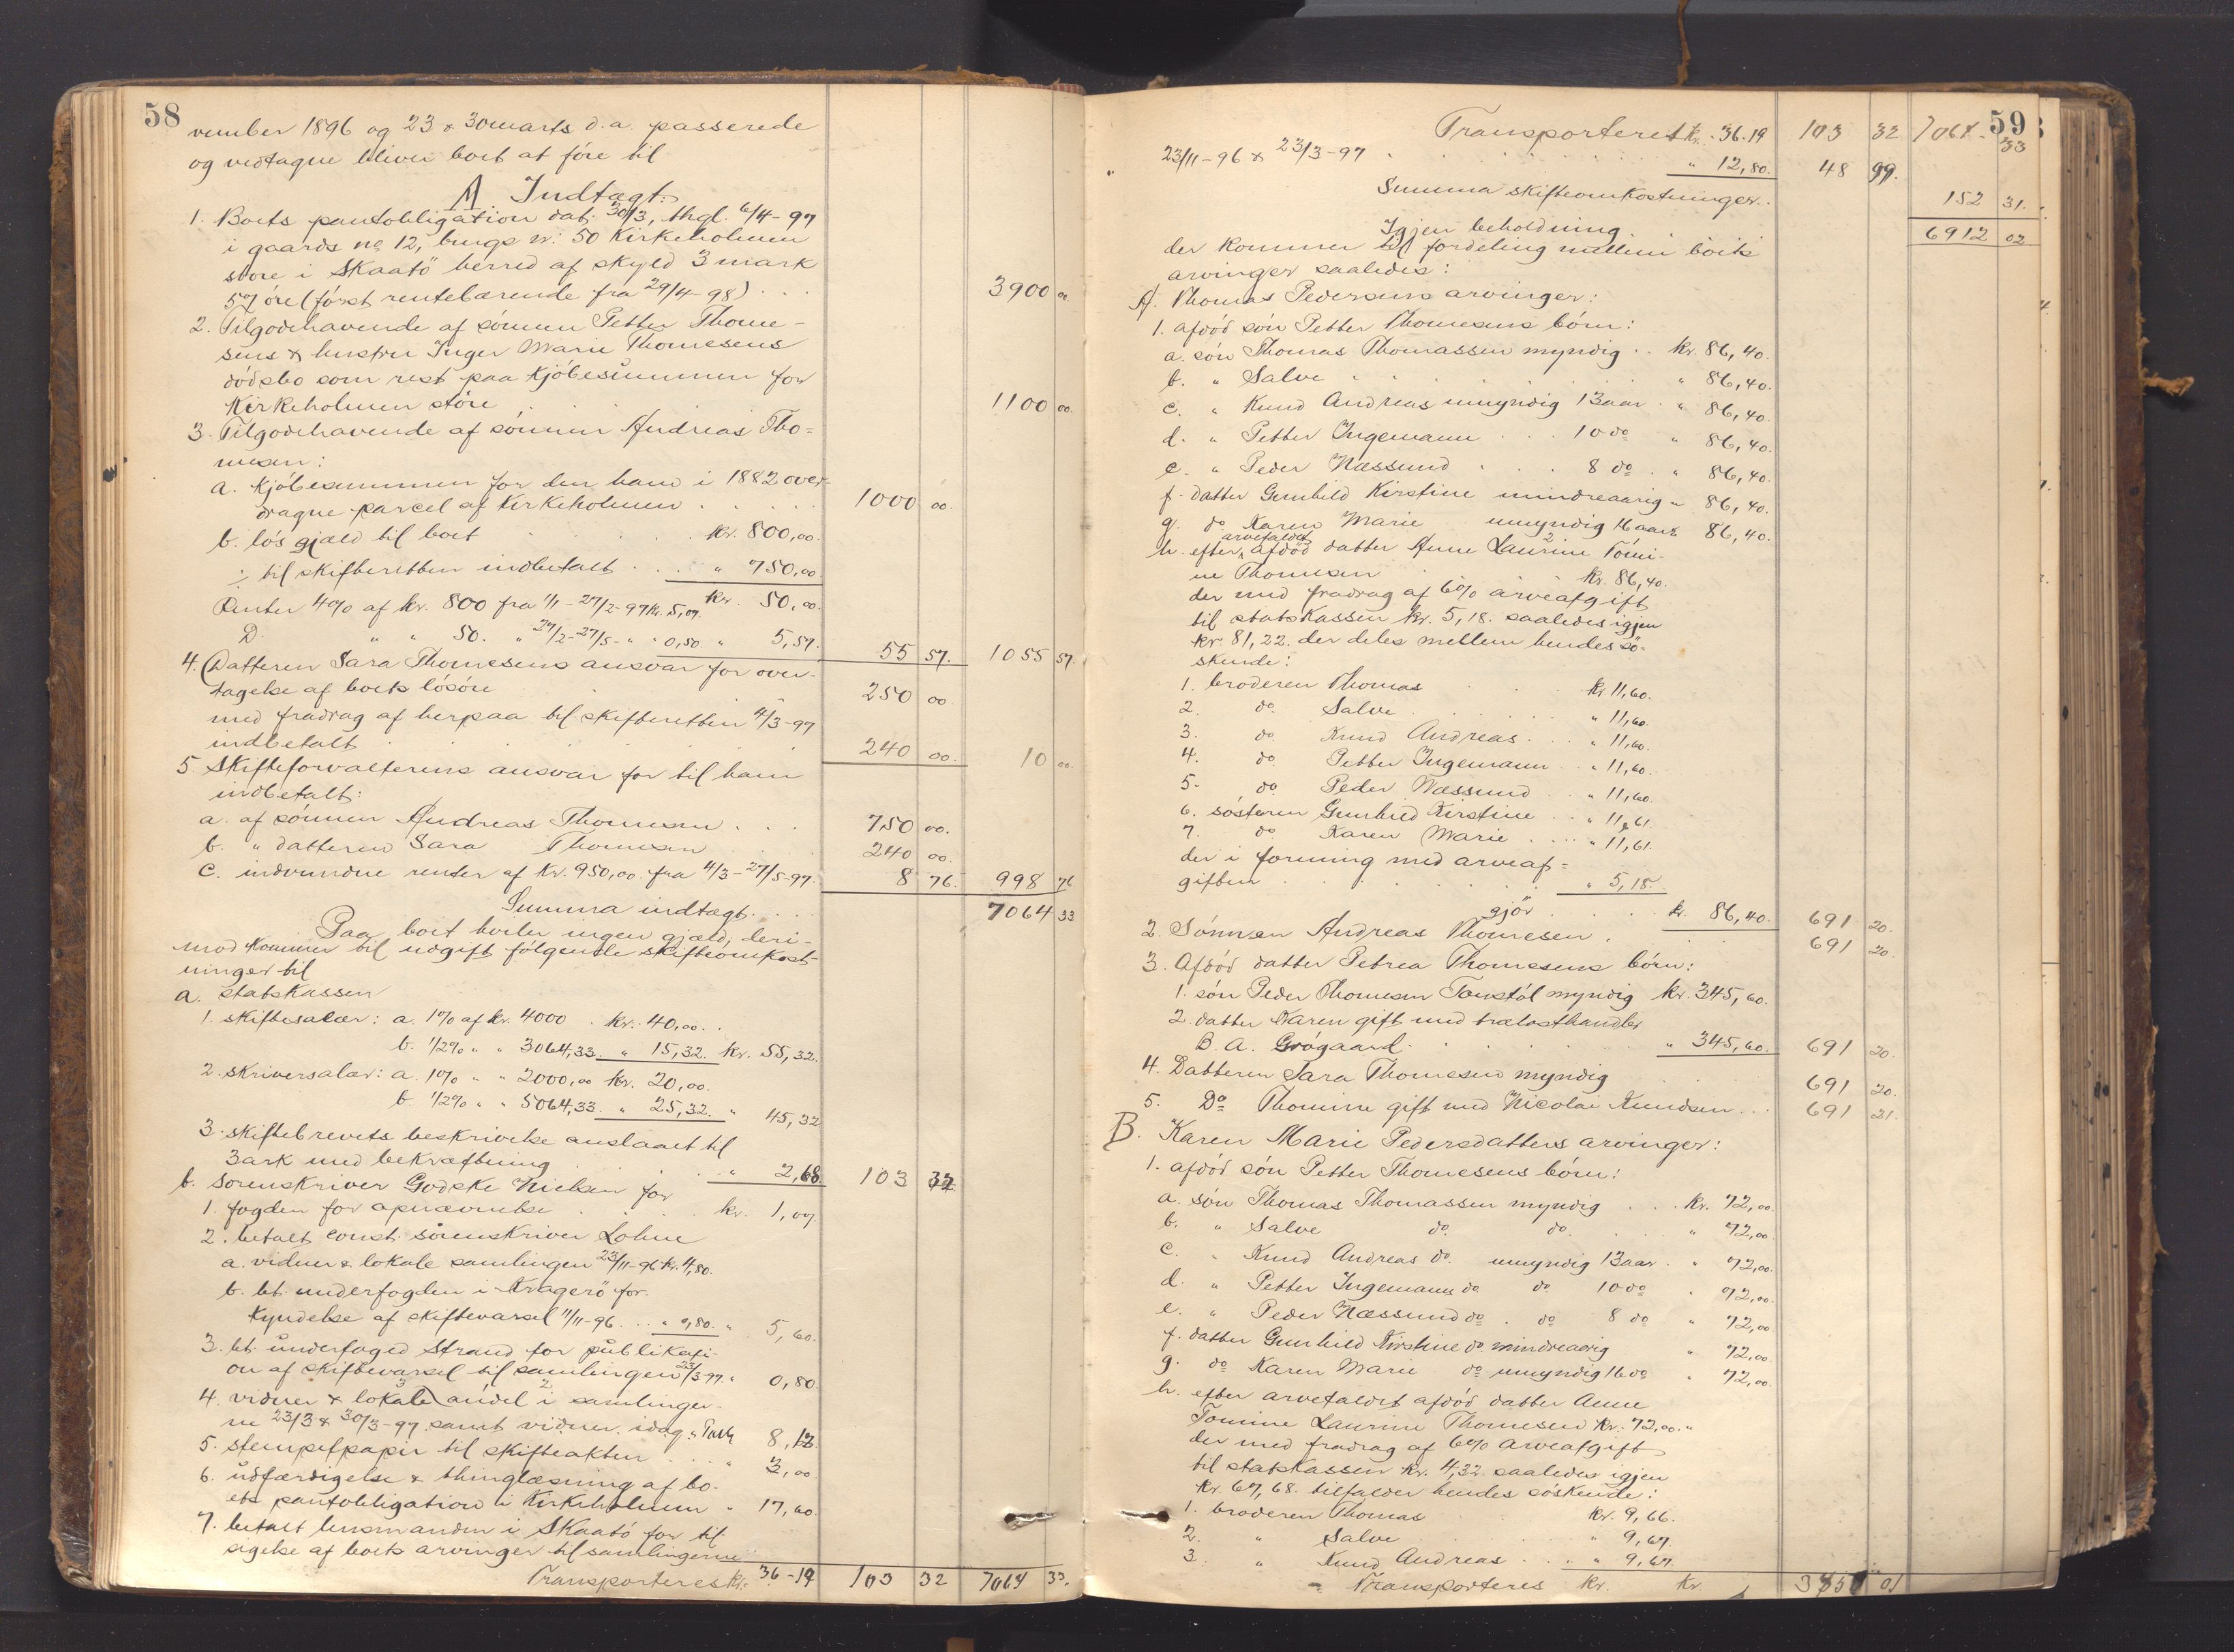 58
vember 1896 og 23 & 30 marts d.a. passerede
og vedtagne bliver boet at føre til
A. Indtægt:
1. Boets pantobligation dat. 30/3, thgl. 6/4-97
i gaards no 12, brugs nr: 50 Kirkeholmen
store i Skaatö herred af skyld 3 mark
57 öre (først rentebærende fra 29/4-98) . . . 3900 00
2. Tilgodehavende af sønnen Petter Thome-
sens & hustru Inger Marie Thomesens
dödsbo som rest paa kjöbesummen for
Kirkeholmen störe . 1100 00.
3. Tilgodehavende af sönnen Andreas Tho=
mesen:
a. Kjöbesummen for den ham i 1882 over-
dragne parcel af Kirkeholmen . . . . . 1000 00.
b. lös gjæld til boet . . . . . kr. 800,00.
÷ til skifteretten indbetalt . . . " 750,00.
kr. 50,00.
Renter 4% af kr. 800 fra 1/1-27/2-97 kr. 5,07.
D. " " 50. " 27/2-27/5- " " 0,50. " 5,57. 55 57. 1055 57.
4. Datteren Sara Thomesens ansvar for over-
tagelse af boets lösöre . 250 00
med fradrag af herpaa til skifteretten 4/3-97
indbetalt . . . . . . 240 00. 10 00.
5. Skifteforvalterens ansvar for til ham
indbetalt:
a. af sönnen Andreas Thomesen . . . 750 00.
b. " datteren Sara Thomesen . . 240 00.
c. indvundne renter af kr. 950,00. fra 4/3-27/5-97. 8 76. 998 76
Summa indtægt . . . . 7064 33
Paa boet hviler ingen gjæld; deri-
mod kommer til udgift følgende skifteomkost-
ninger til
a. statskassen
1. skiftesalær: a. 1% af kr. 4000 . kr. 40,00. .
b. 1/2% " " 3064,33. " 15,32. kr. 55,32.
2. skriversalær: a. 1% " " 2000,00 kr. 20,00.
b. 1/2% " " 5064,33. " 25,32. " 45,32
3. skiftebrevets beskrivelse anslaaet til
3 ark med bekræftning . . . . . " 2,68. 103 32.
b. sorenskriver Godske Nielsen for
1. fogden for opnævnelse . . . . kr. 1,00.
2. betalt const. sörenskriver Lohne
a. vidner & lokale samlingen 23/11-96 kr. 4,80.
b. bt. underfogden i Kragerö for
kyndelse af skiftevarsel 11/11-96 . . . " 0,80. " 5,60.
3. bt. underfoged Strand for publikati-
on af skiftevarsel til samlingen 23/3-97. " 0,80.
4. vidner & lokale andel i samlinger-
ne 23/3 & 30/3-97 samt vidner idag " 8,12.
5. stempelpapir til skifteakten . . . . " 3,00.
6. udfærdigelse & thinglæsning af bo-
ets pantobligation i Kirkeholmen " 17,60.
7. betalt lensmanden i Skaatö for til
sigelse af boets arvinger til samlingerne
Transporteres kr. 36-19 103 32 7064 33.
59
Transporteret kr. 36.19 103 32 7064 33
23/11-96 & 23/3-97 . . . . . . . . " 12,80. 48 99.
Summa skifteomkostninger . . 152 31.
Igjen beholdning . 6912 02
der kommer til fordeling mellem boets
arvinger saaledes:
A. Thomas Pedersens arvinger:
1. afdöd sön Petter Thomesens börn:
a. sön Thomas Thomassen myndig . . kr. 86,40.
b. " Salve . . . . . . . " 86,40.
c. " Knud Andreas umyndig 13 aar . " 86,40.
d. " Petter Ingemann . . . 10 do " 86,40.
e. " Peder Næssund . . . 8 do . " 86,40.
f. datter Gunhild Kirstine mindreaarig " 86,40.
g. do Karen Marie . umyndig 16 aar " 86,40.
h. efter arvefaldet afdöd datter Anne Laurine Tömi-
ne Thomesen . kr. 86,40.
der med fradrag af 6% arveafgift
til statskassen kr. 5,18. saaledes igjen
kr. 81,22. der deles mellem hendes sö-
skende:
1. broderen Thomas . . . . kr. 11,60.
2. do Salve . . . . . " 11,60.
3. do Knud Andreas . . . " 11,60.
4. do Petter Ingemann . . " 11,60.
5. do Peder Næssund . . " 11,60.
6. sösteren Gunhild Kirstine . . " 11,61.
7. do Karen Marie . . . . " 11,61.
der i forening med arveaf=
giften . . . . . . . . " 5,18.
gjör . . . . kr. 86,40. 691 20.
2. Sønnen Andreas Thomesen . . 691 20.
3. Afdöd datter Petrea Thomesens börn:
1. sön Peder Thomesen Tonstöl myndig kr. 345,60.
2. datter Karen gift med trælasthandler
B. A. Grögaard . . . . . . " 345,60. 691 20.
4. Datteren Sara Thomesen myndig . . 691 20.
5. Do Thomine gift med Nicolai Knudsen . . . 691 21.
B. Karen Marie Pedersdatters arvinger:
1. afdöd sön Petter Thomesens börn:
a. sön Thomas Thomassen myndig . . . kr. 72,00.
b. " Salve do do. . . . " 72,00.
c. " Knud Andreas do. umyndig 13 aar . " 72,00.
d. " Petter Ingemann do. do 10 do . 72,00.
e. " Peder Næssund do . do 8 do " 72,00
f. datter Gunhild Kirstine do. mindreaarig " 72,00
g. do Karen Marie do umyndig 16 do " 72,00.
h. efter arvefaldet afdöd datter Anne
Tomine Laurine Thomesen kr. 72,00. "
der med fradrag af 6% arveafgift
til statskassen kr. 4,32. saaledes igjen
kr. 67,68. tilfalder hendes söskende:
1. broderen Thomas . kr. 9,66.
2. " Salve . . " 9,67.
3. " Knud Andreas . . . " 9,67.
Transporteres kr. kr. 01